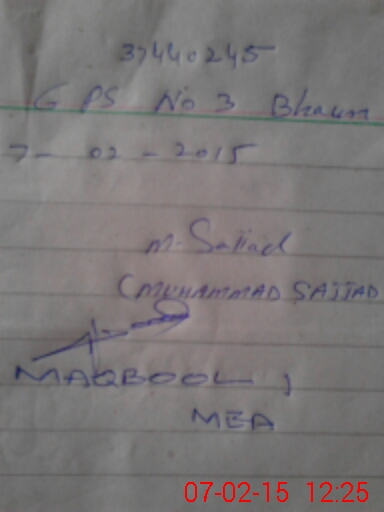 37440245
GPS No 3 Bhaun
7-02-2015
M. Sajjad
(MUHAMMAD SAJJAD
MAQBOOL,
MEA
07-02-15 12:25